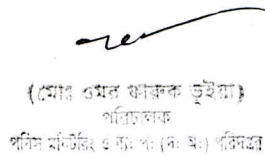 (মোঃ ওমর ফারুক ভূইয়া)
পরিচালক
পুলিশ মনিটরিং ও ব্যঃ পঃ (দঃ অঃ) পরিদপ্তর